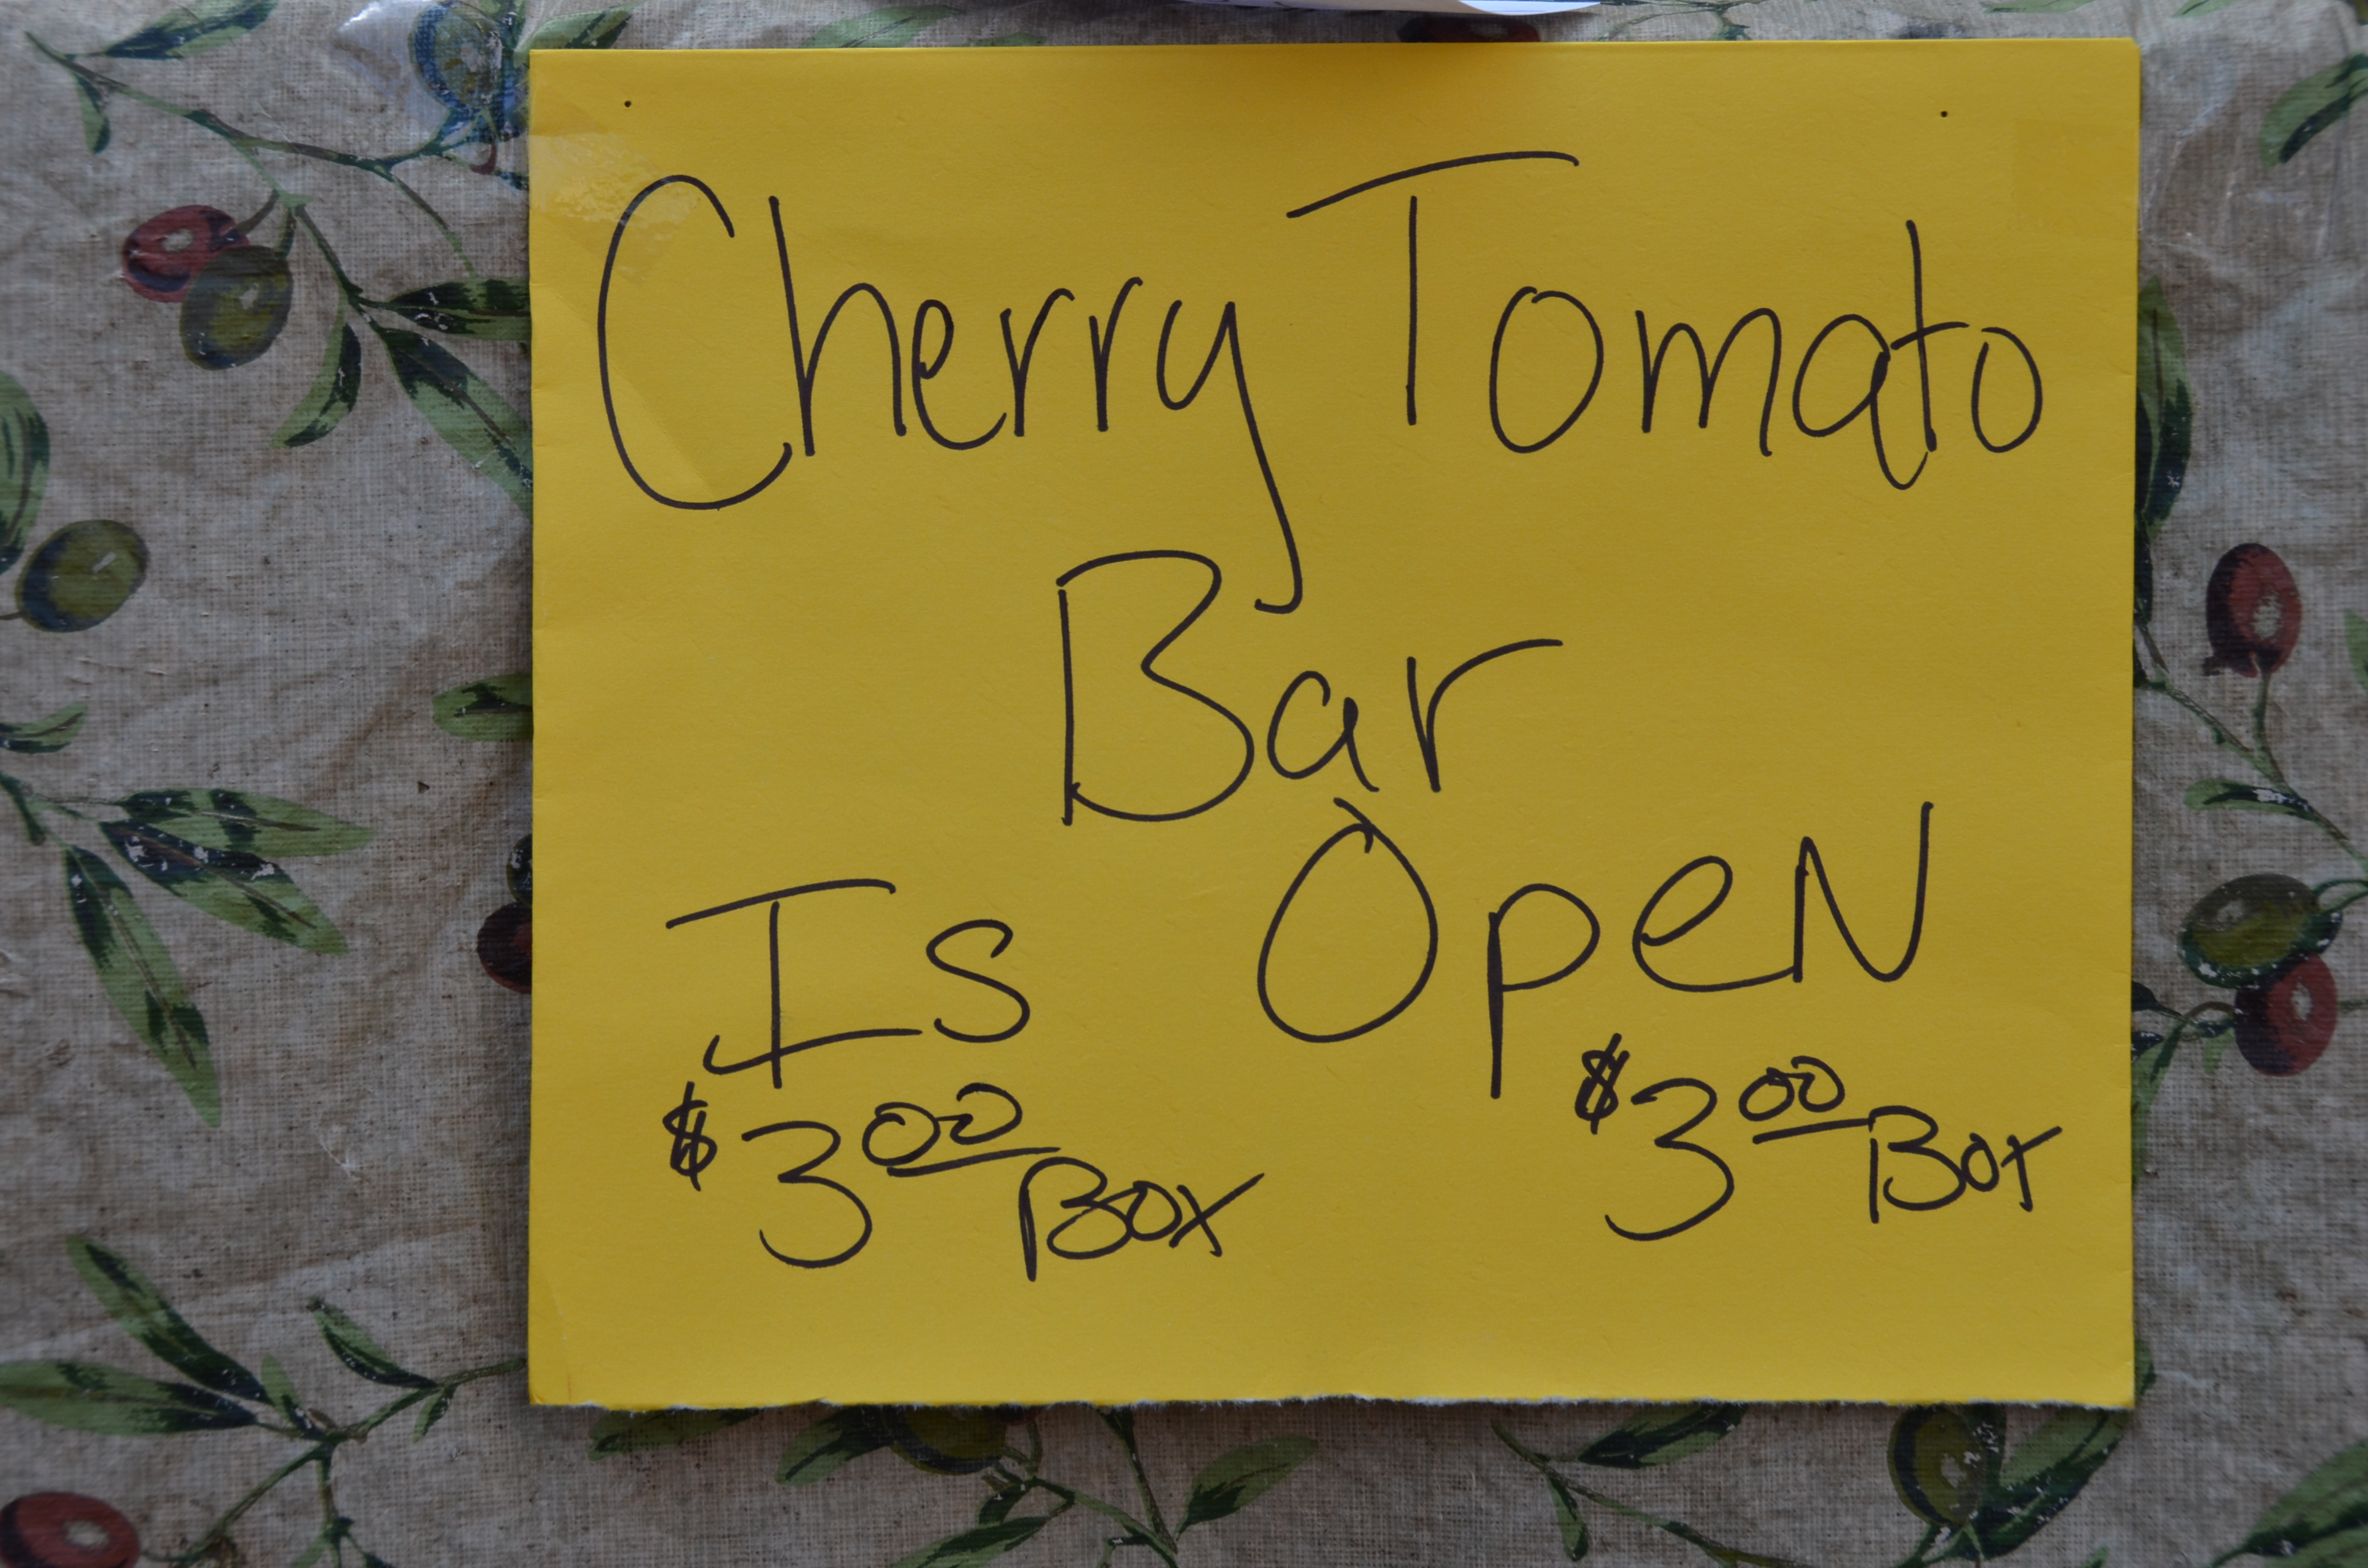 Cherry Tomato
Bar
Is Open
$3.00 Box $3.00 Box